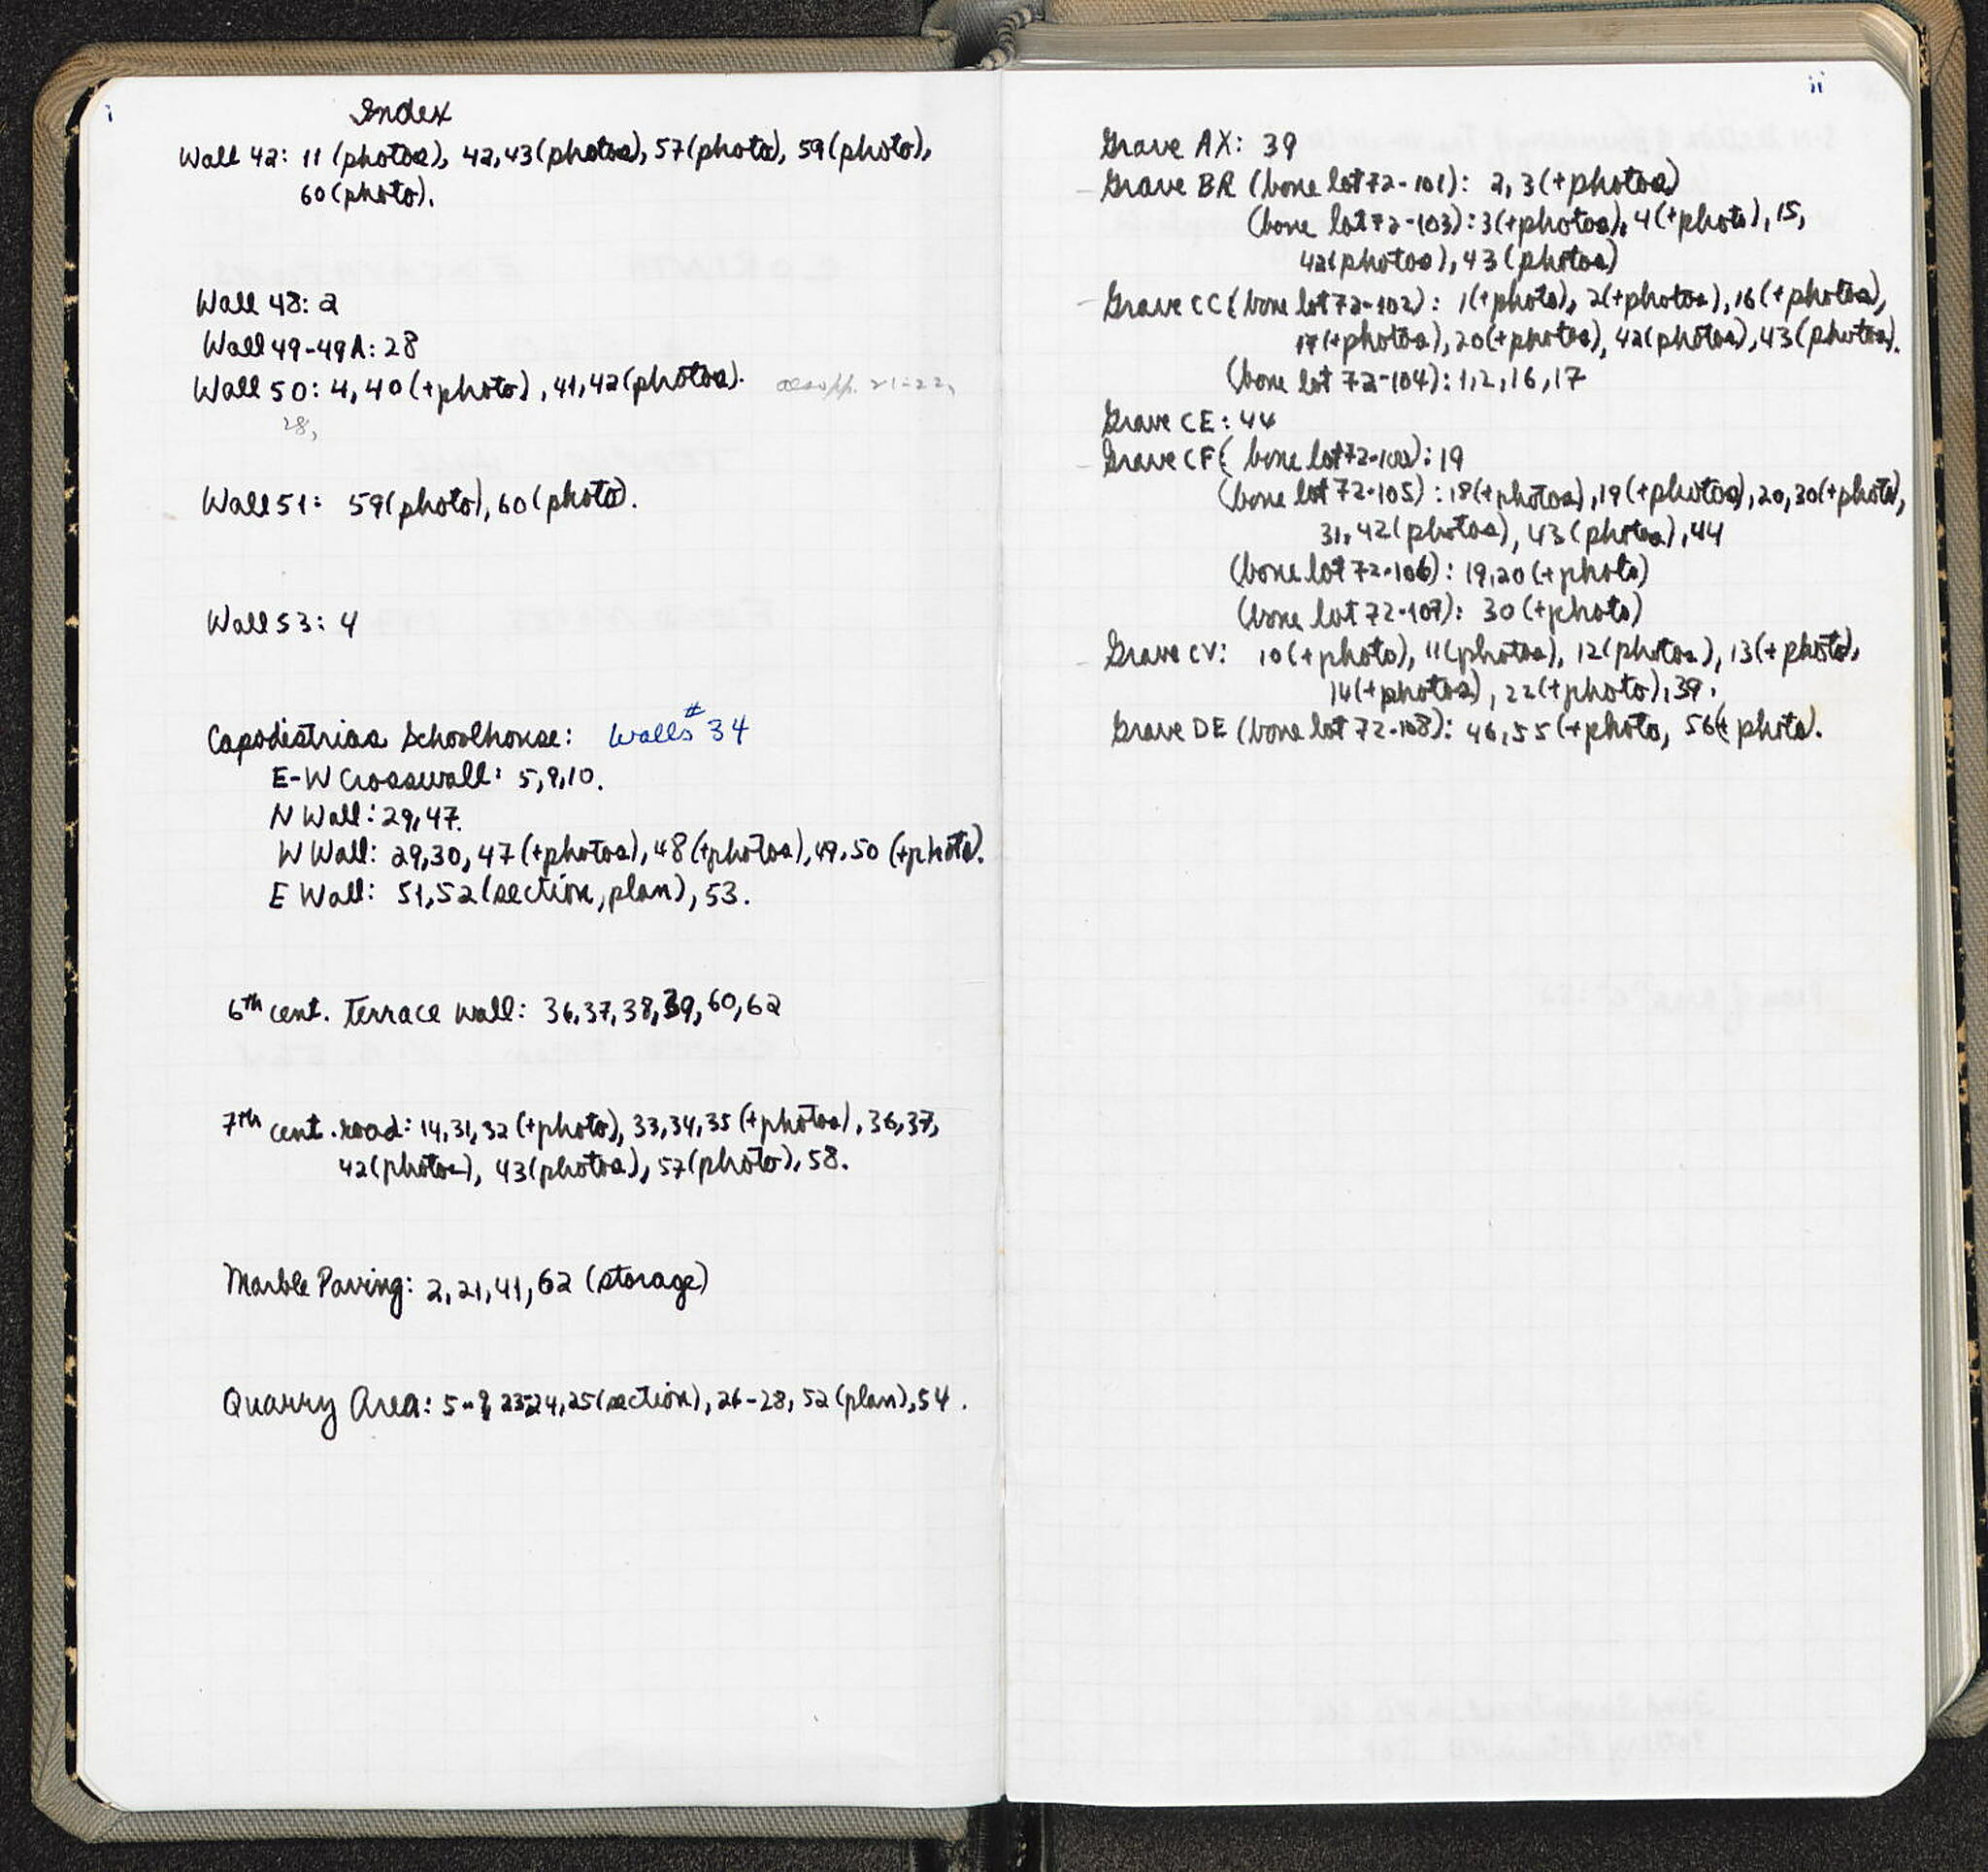 i
Index
Wall 42: 11 (photos), 42,43(photos), 57(photo), 59(photo),
60(photo).
Wall 48: 2
Wall 49-49A: 28
Wall 50: 4, 40(+photo), 41, 42(photos). also pp. 21-22,
28,
Wall 51: 59(photo), 60(photo).
Wall 53: 4
Capodistrias Schoolhouse: Walls # 34
E-W Crosswall: 5,9,10.
N Wall: 29,47.
W Wall: 29,30, 47(+photos), 48(+photos), 49, 50 (+photo).
E Wall: 51,52(section, plan), 53.
6th cent. Terrace wall: 36,37,38,39,60,62
7th cent. road: 14,31,32(+photo), 33,34,35(+photos), 36,37,
42(photos), 43(photos), 57(photo), 58.
Marble Paving: 2,21,41, 62 (storage)
Quarry Area: 5-9, 23-24, 25(section), 26-28, 52(plan), 54.
ii
Grave AX: 39
Grave BR (bone lot 72-101): 2, 3(+photos)
(bone lot 72-103): 3(+photos), 4(+photo), 15,
42(photos), 43(photos)
Grave CC (bone lot 72-102): 1(+photo), 2(+photos), 16(+photos),
17(+photos), 20(+photos), 42(photos), 43(photos).
(bone lot 72-104): 1,2,16,17
Grave CE: 44
Grave CF( bone lot 72-100): 19
(bone lot 72-105): 18(+photos), 19(+photos), 20, 30(+photo),
31, 42(photos), 43(photos), 44
(bone lot 72-106): 19,20(+photo)
(bone lot 72-107): 30(+photo)
Grave CV: 10(+photo), 11(photos), 12(photos), 13(+photo),
14(+photos), 22(+photo), 39.
Grave DE (bone lot 72-108): 46, 55(+photo, 56(+ photo).